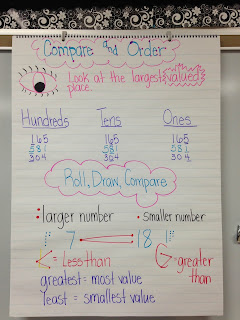 Compare and Order
Look at the largest valued
place.
Hundreds Tens Ones
165 165 165
581 581 581
304 304 304
Roll, Draw, Compare
• larger number • smaller number
7 < 18
< = Less than > = greater
than
greatest = most value
least = smallest value